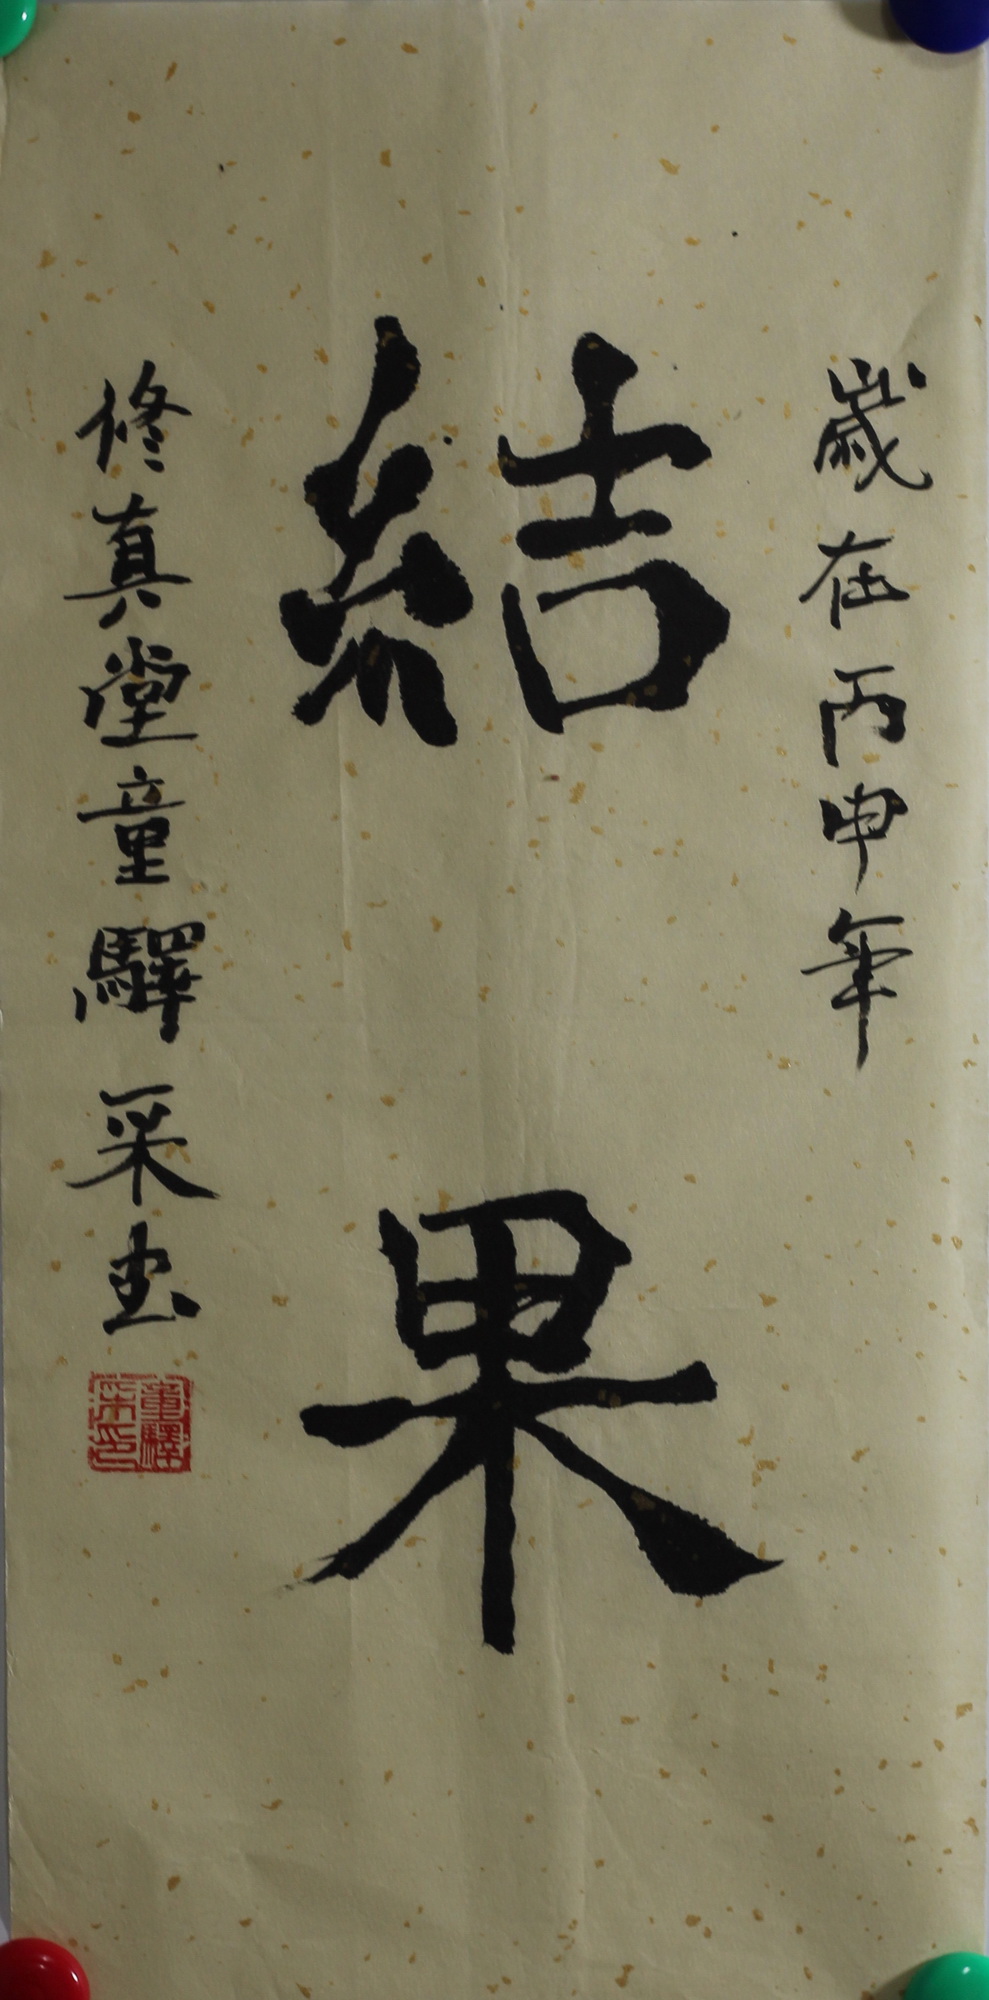 歲在丙申年
結果
修真堂童驛采書
童驛
采印